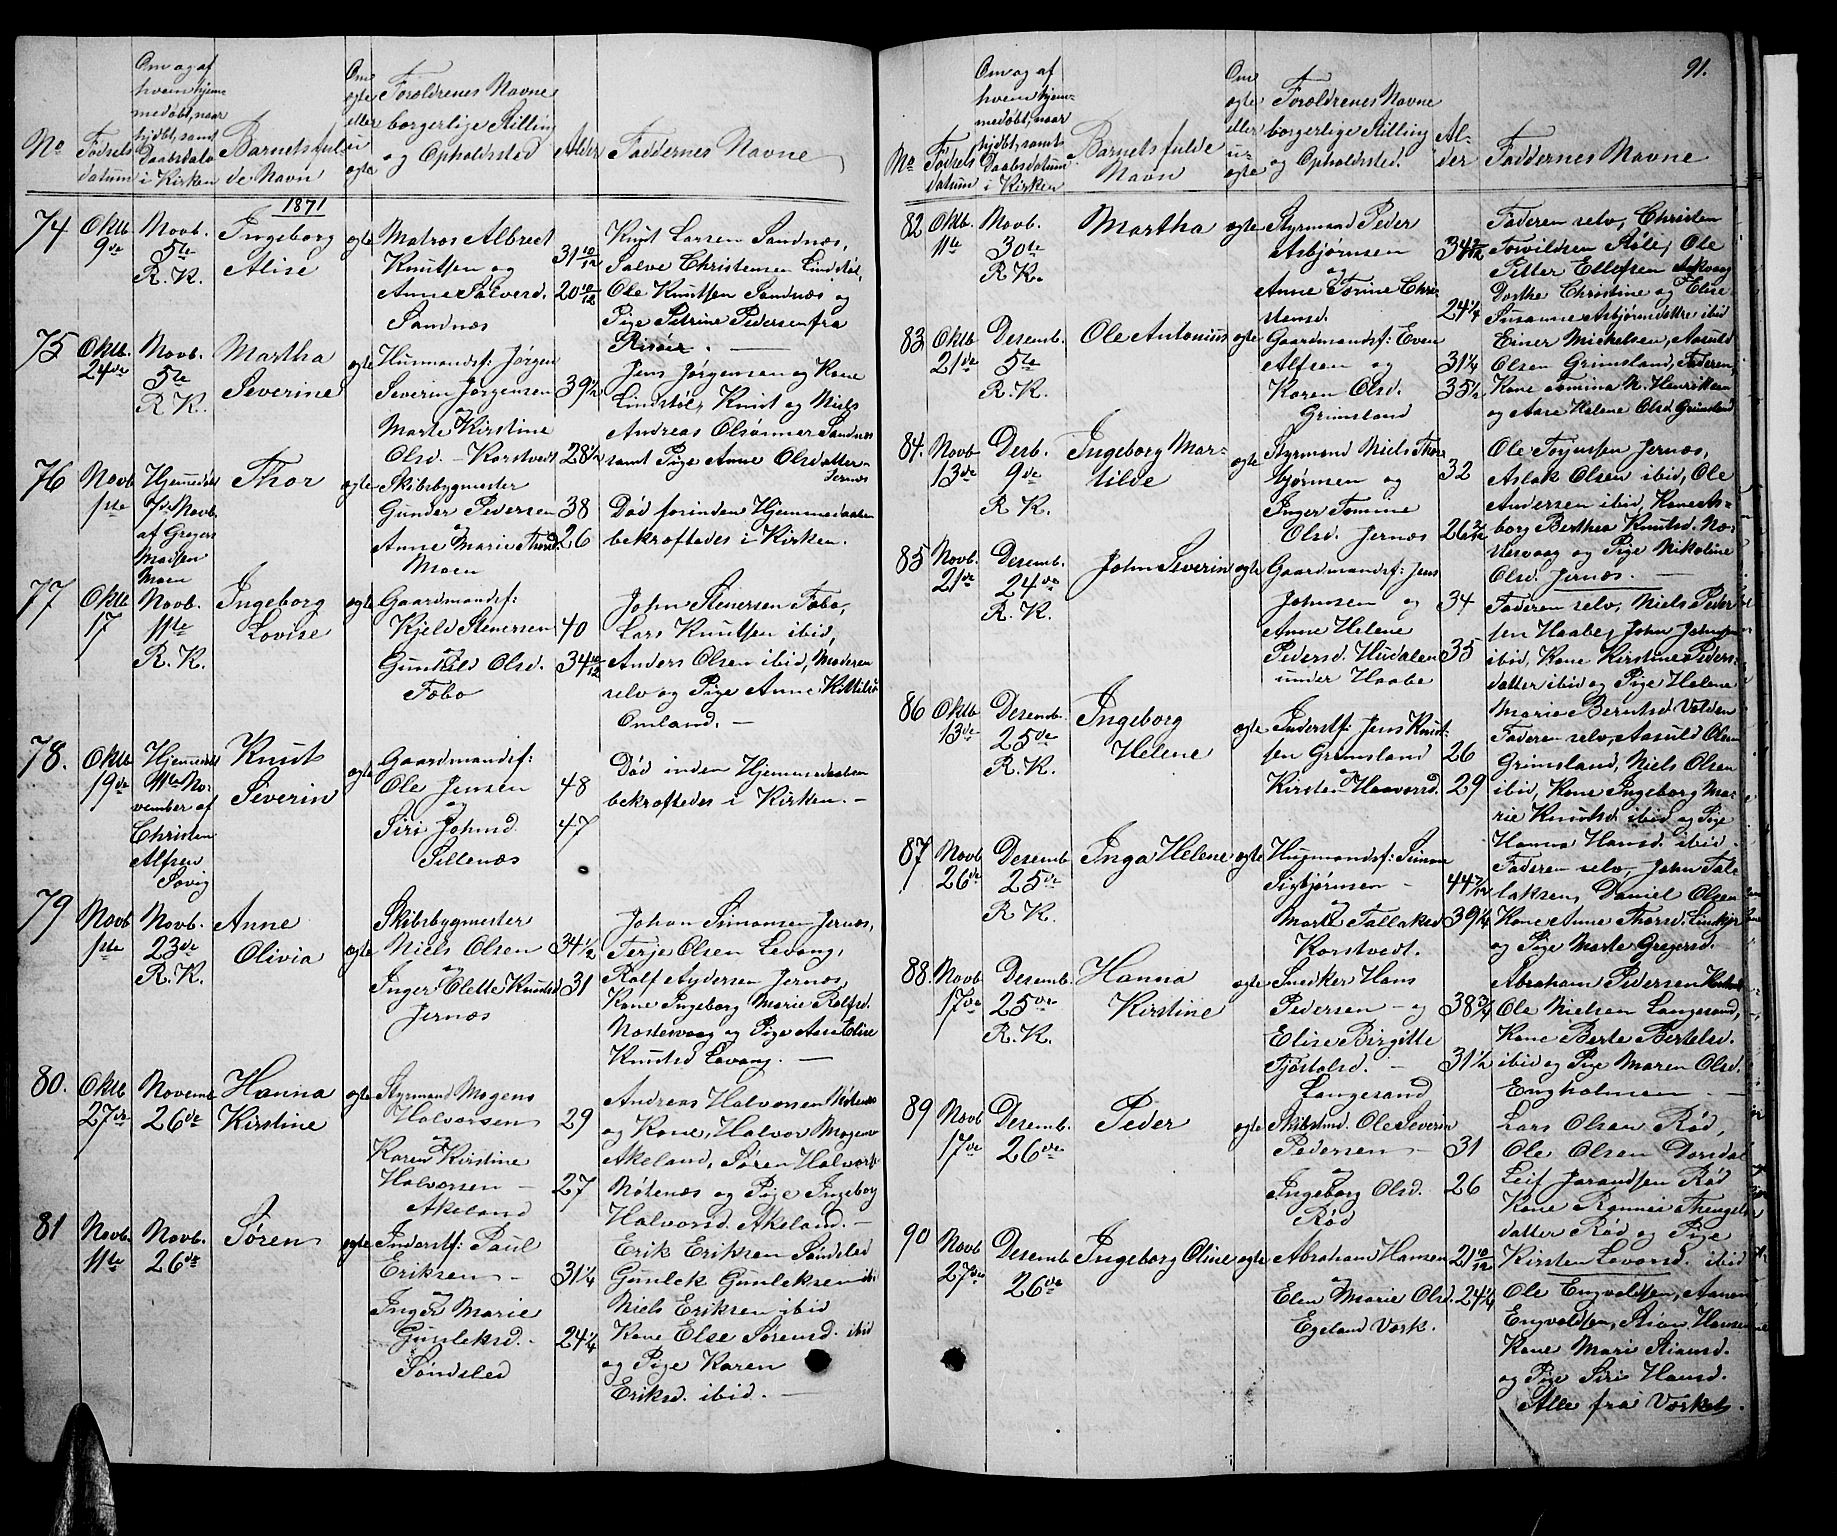 91.
No
Fødsels datum
Om og af hvem hjemmedøbt, naar hjdbt, samt Daabsdatum i Kirken
Barnets fulde Navn
Om ægte eller uægte
Forældrenes Navne borgerlige Stilling og Opholdsted
Alder
Faddernes Navne
1871
74 Oktb. 9de Novb. 5te R. K.
Ingeborg Alise
ægte
Matros Albret Knutsen og Anne Salvesd. Sandnæs
31 10/12
20 10/12
Knut Larsen Sandnæs,
Salve Christensen Lindstøl,
Ole Knutsen Sandnæs og
Pige Petrine Pedersen fra
Risøer. —
75 Oktb. 24de Novb. 5te R. K.
Martha Severine
ægte
Husmandsf: Jørgen Severin Jørgensen og Marte Kirstine Olsd. – Korstvedt
39 1/2
28 1/2
Jens Jørgensen og Kone
Lindstøl, Knut og Niels
Andreas Olsønner Sandnæs
samt Pige Anne Olsdatter
Jernæs
76 Novb 1ste Hjemmedøbt Novb. af Gregers Madsen Moen
Thor
ægte
Skibsbygmester Gunder Pedersen og Anne Marie Thorsd Moen
38
26
Død forinden Hjemmedaaben
bekræftedes i Kirken.
77 Oktb 17 Novb. 11te R. K.
Ingeborg Lovise
ægte
Gaardmandsf: Kjeld Stenersen og Gunhild Olsd. Fobo
40
34 10/12
John Stenersen Fobo,
Lars Knutsen ibid,
Anders Olsen ibid, Moderen
selv og Pige Anne
Omland. —
78. Oktb 19de Hjemmedøbt 11te November af Christen Alfsen Søvig
Knut Severin
ægte
Gaardmandsf: Ole Jensen og Siri Johnsd. Sillenæs
48
47
Død inden Hjemmedaaben
bekræftedes i Kirken. —
79 Novb 1ste Novb. 23de R. K.
Anne Olivia
ægte
Skibsbygmester Niels Olsen og Inger Elette Knutsd Jernæs
34 1/2
31
Johan Simonsen Jernæs,
Terje Olsen Levang,
Rolf Andersen Jernæs,
Kone Ingeborg Marie Rolfsd.
Nostervaag og Pige Aase Elise
Knutsd Levang. —
80. Oktb 27de Novemb 26de
Hanna Kirstine
ægte
Styrmand Mogens Halvorsen og Karen Kirstine Halvorsen – Akeland
29
27
Andreas Halvorsen Nötenæs
og Kone, Halvor Mogens
Akeland, Søren Halvors
Nötenæs og Pige Ingeborg
Halvorsd. Akeland. —
81 Novb. 11te Novb. 26de
Søren
ægte
Inderstf: Paul Eriksen – og Inger Marie Gunleksd. – Søndeled
31 1/4
24 1/4
Erik Eriksen Søndeled
Gunlek Gunleksen ibi
Niels Eriksen ibid
Kone Else Sørensd. ibid
og Pige Karen
Eriksd. ibid. —
No
Fødsels datum
Om og af hvem hjemmedøbt, naar hjdbt, samt Daabsdatum i Kirken
Barnets fulde Navn
Om ægte eller uægte
Forældrenes Navne borgerlige Stilling og Opholdsted.
Alder
Faddernes Navne
82 Oktb. 11te Novb. 30te R. K.
Martha
ægte
Styrmand Peder Asbjørnsen og Anne Tomine Christensd.
24 1/4
Faderen selv, Christen
Røle, Ole
Petter Ellefsen Askvaag
Dorthe Christine og Elise
Susanne Asbjørnsdøttre ibid
83 Oktb. 21de Desemb. 5te R. K.
Ole Antonius
ægte
Gaardmandsf: Even Alfsen og Karen Olsd. Grimsland
31 1/4
35 1/2
Einer Mickelsen, Aasuld
Olsen Grimsland, Faderen,
Kone Tomina N. Henriksen
og Aase Helene Olsd. Grimsland
84. Novb 13de Desb. 9de R. K.
Ingeborg Martilde
ægte
Styrmand Niels Thorbjørnsen og Inger Tomine Olsd. Jernæs
32
Ole Torjussen Jernæs,
Aslak Olsen ibid, Ole
Andersen ibid, Kone Asborg
Berthea Knutsd. Nostervaag
og Pige Nikoline
Olsd. Jernæs. —
85 Novb. 21de Desemb. 24de R. K.
John Severin
ægte
Gaardmandsf: Jens Johnsen og Anne Helene Pedersd. Hudalen under Haabe
34
35
Faderen selv, Niels Pedersen
Haabe, John Johnsen
ibid, Kone Kirstine Pedersdatter
ibid og Pige Helene
Marie Berntsd Valden
86 Oktb 13de Desemb. 25de R. K.
Ingeborg Helene
ægte
Inderstf: Jens Knutsen Grimsland og Kirsten Haavorsd.
26
29
Faderen selv, Aasuld Olsen
Grimsland, Niels Olsen
ibid, Kone Ingeborg Marie
Knutsd. ibid og Pige
Hanna Hansd. ibid.
87 Novb 26de Desemb. 25de R. K.
Inga Helene
ægte
Husmandsf: Simon Sigbjørnsen – og Marte Tallaksd Korstvedt.
39 1/4
Faderen selv, John Tallaksen,
Daniel Olsen
Kone Anne Thorsd.
og Pige Marte Gregersd.
88 Novb 17de Desemb. 25de R. K.
Hanna Kirstine
ægte
Snedker Hans Pedersen – og Elise Birgitte Fjøstolsd. – Langesand
38 3/4
31 1/2
Abraham Pedersen
Ole Nielsen Langesand,
Kone Berte Bertelsd.
ibid og Pige Maren Olsd.
Engholmen —
89 Novb 17de Desemb. 26de
Peder
ægte
Skibstmd. Ole Severin Pedersen – og Ingeborg Olsd. Rød
31
26
Lars Olsen Rød,
Ole Olsen Dørsdal
Leif Jørandsen Rød
Kone Rønnei Thengelsdatter
Rød og Pige
Kirsten Levorsd. ibid
90 Novb 27de Desemb 26de
Ingeborg Oline
ægte
Abraham Hansen og Elen Marie Olsd. Egeland Værk.
21 10/12
24 1/4
Ole Engvaldsen, Aanon
Engvaldsen, Hansen
Kone Mari
og Pige Siri Hansd.
Alle fra Værket.